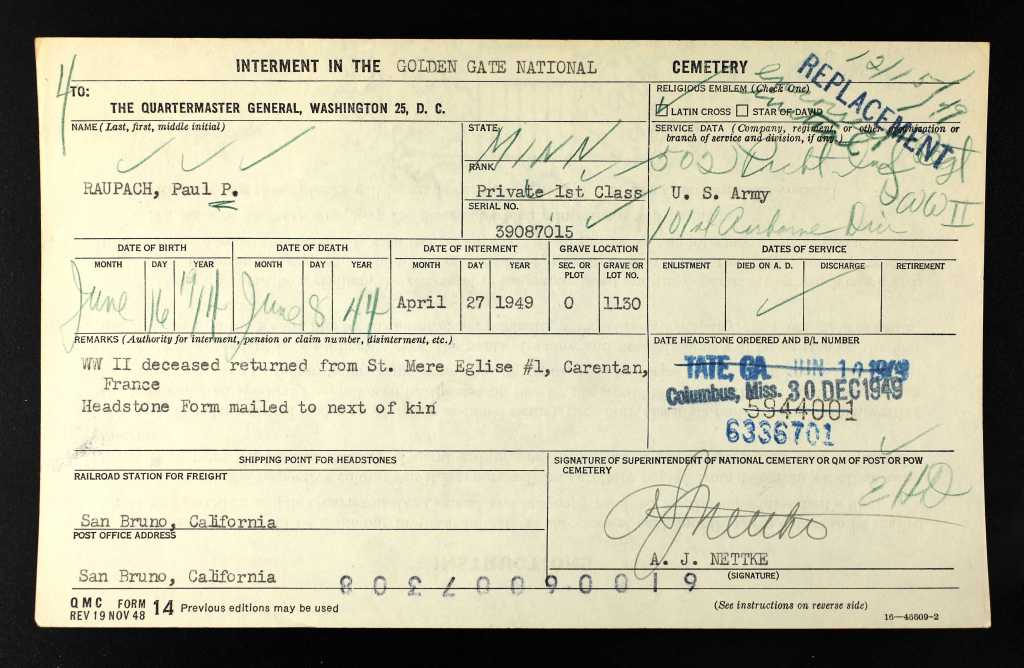 4
INTERMENT IN THE GOLDEN GATE NATIONAL CEMETERY
12/15/49
REPLACEMENT
TO:
THE QUARTERMASTER GENERAL, WASHINGTON 25, D. C.
RELIGIOUS EMBLEM (Check One)
LATIN CROSS STAR OF DAVID
NAME (Last, first, middle initial)
RAUPACH, Paul P.
STATE
MINN
RANK
Private 1st Class
SERIAL NO.
39087015
SERVICE DATA (Company, regiment, or other organization or
branch of service and division, if any.)
502 Prcht Inf Rgt
U. S. Army
WW II
101st Airborne Div
DATE OF BIRTH DATE OF DEATH DATE OF INTERMENT GRAVE LOCATION DATES OF SERVICE
MONTH DAY YEAR MONTH DAY YEAR MONTH DAY YEAR SEC. OR PLOT GRAVE OR LOT NO. ENLISTMENT DIED ON A. D. DISCHARGE RETIREMENT
June 16 1914 June 8 44 April 27 1949 O 1130
REMARKS (Authority for interment, pension or claim number, disinterment, etc.)
WW II deceased returned from St. Mere Eglise #1, Carentan,
France
Headstone Form mailed to next of kin
DATE HEADSTONE ORDERED AND B/L NUMBER
TATE, GA. JUN 10 1949
Columbus, Miss. 30 DEC 1949
5944001
6336701
SHIPPING POINT FOR HEADSTONES
RAILROAD STATION FOR FREIGHT
San Bruno, California
POST OFFICE ADDRESS
San Bruno, California
SIGNATURE OF SUPERINTENDENT OF NATIONAL CEMETERY OR QM OF POST OR POW
CEMETERY
A J Nettke
A. J. NETTKE
(SIGNATURE)
610060007308
QMC FORM 14 Previous editions may be used
REV 19 NOV 48
(See instructions on reverse side)
16—46609-2